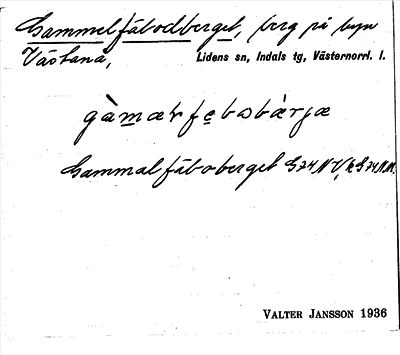 Gammelfäbodberget, berg på byn
Västanå, Lidens sn, Indals tg, Västernorrl. l.
gàmæɽ fębωbàrjæ
Gammalfäboberget G74NV, &G74NM.
VALTER JANSSON 1936